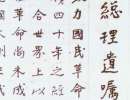 總理遺囑
力國民革命
四十年之經
合世界上以
革命尚未成